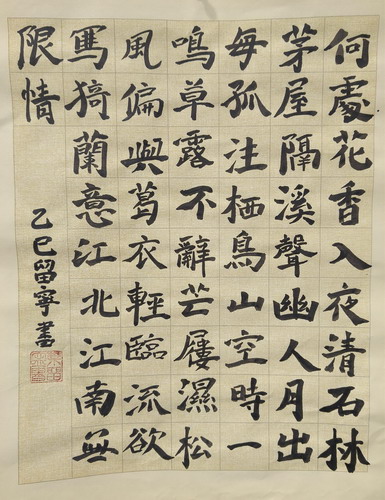 何處花香入夜清石林
茅屋隔溪聲幽人月出
每孤往栖鳥山空時一
鳴草露不辭芒屨濕松
風偏與葛衣輕臨流欲
寫猗蘭意江北江南無
限情
乙巳留寧書